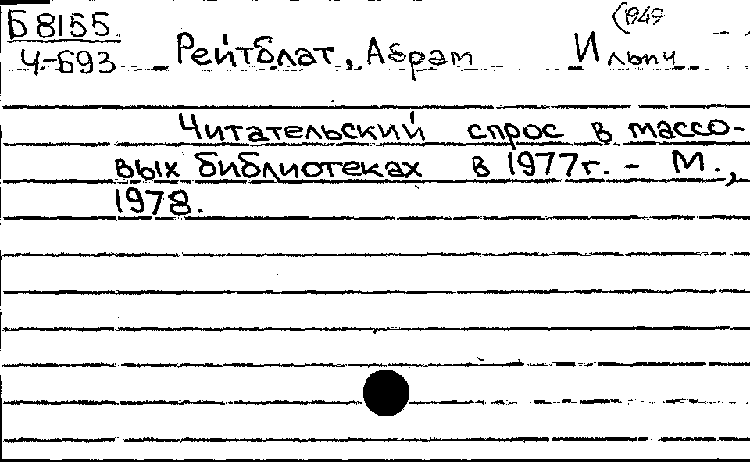 Б 8155
Ч-693
(1949
Рейтблат, Абрам Ильич
Читательский спрос в массо-
вых библиотеках в 1977г. - М.,
1978.